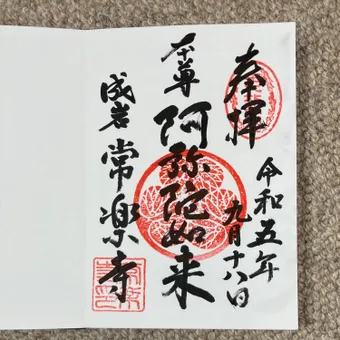 奉拝
令和五年
九月十八日
本尊
阿弥陀如来
成岩
常楽寺